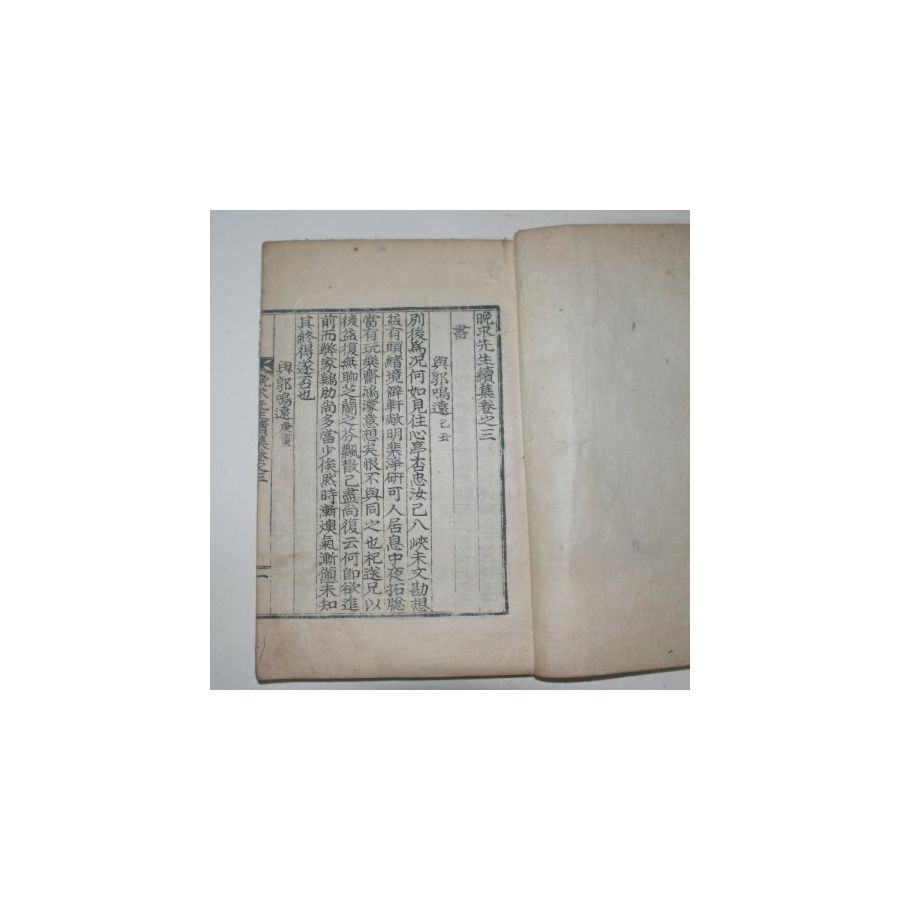 晩求先生續集卷之三
書
與郭鳴遠 己丑
別後爲況何如見住心亭否忠汝已入峽未文勘想
益有頭緖境僻軒敞明棐淨硏可人居息中夜拓牕
當有玩樂齋鴻濛意想矣恨不與同之也祀送兄以
後益復無聊芝蘭之芬飄散已盡尙復云何卽欲進
前而弊家鷄肋尙多當少俟然時漸燠氣漸憊未知
其終得遂否也
與郭鳴遠 庚寅
晩求先生續集卷之三
一